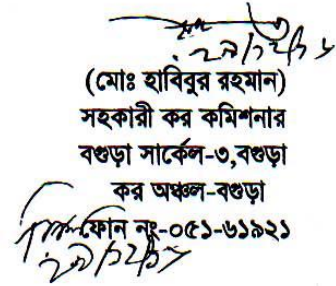 (মোঃ হাবিবুর রহমান)
সহকারী কর কমিশনার
বগুড়া সার্কেল-৩,বগুড়া
কর অঞ্চল-বগুড়া
ফোন নং-০৫১-৬১৯২১